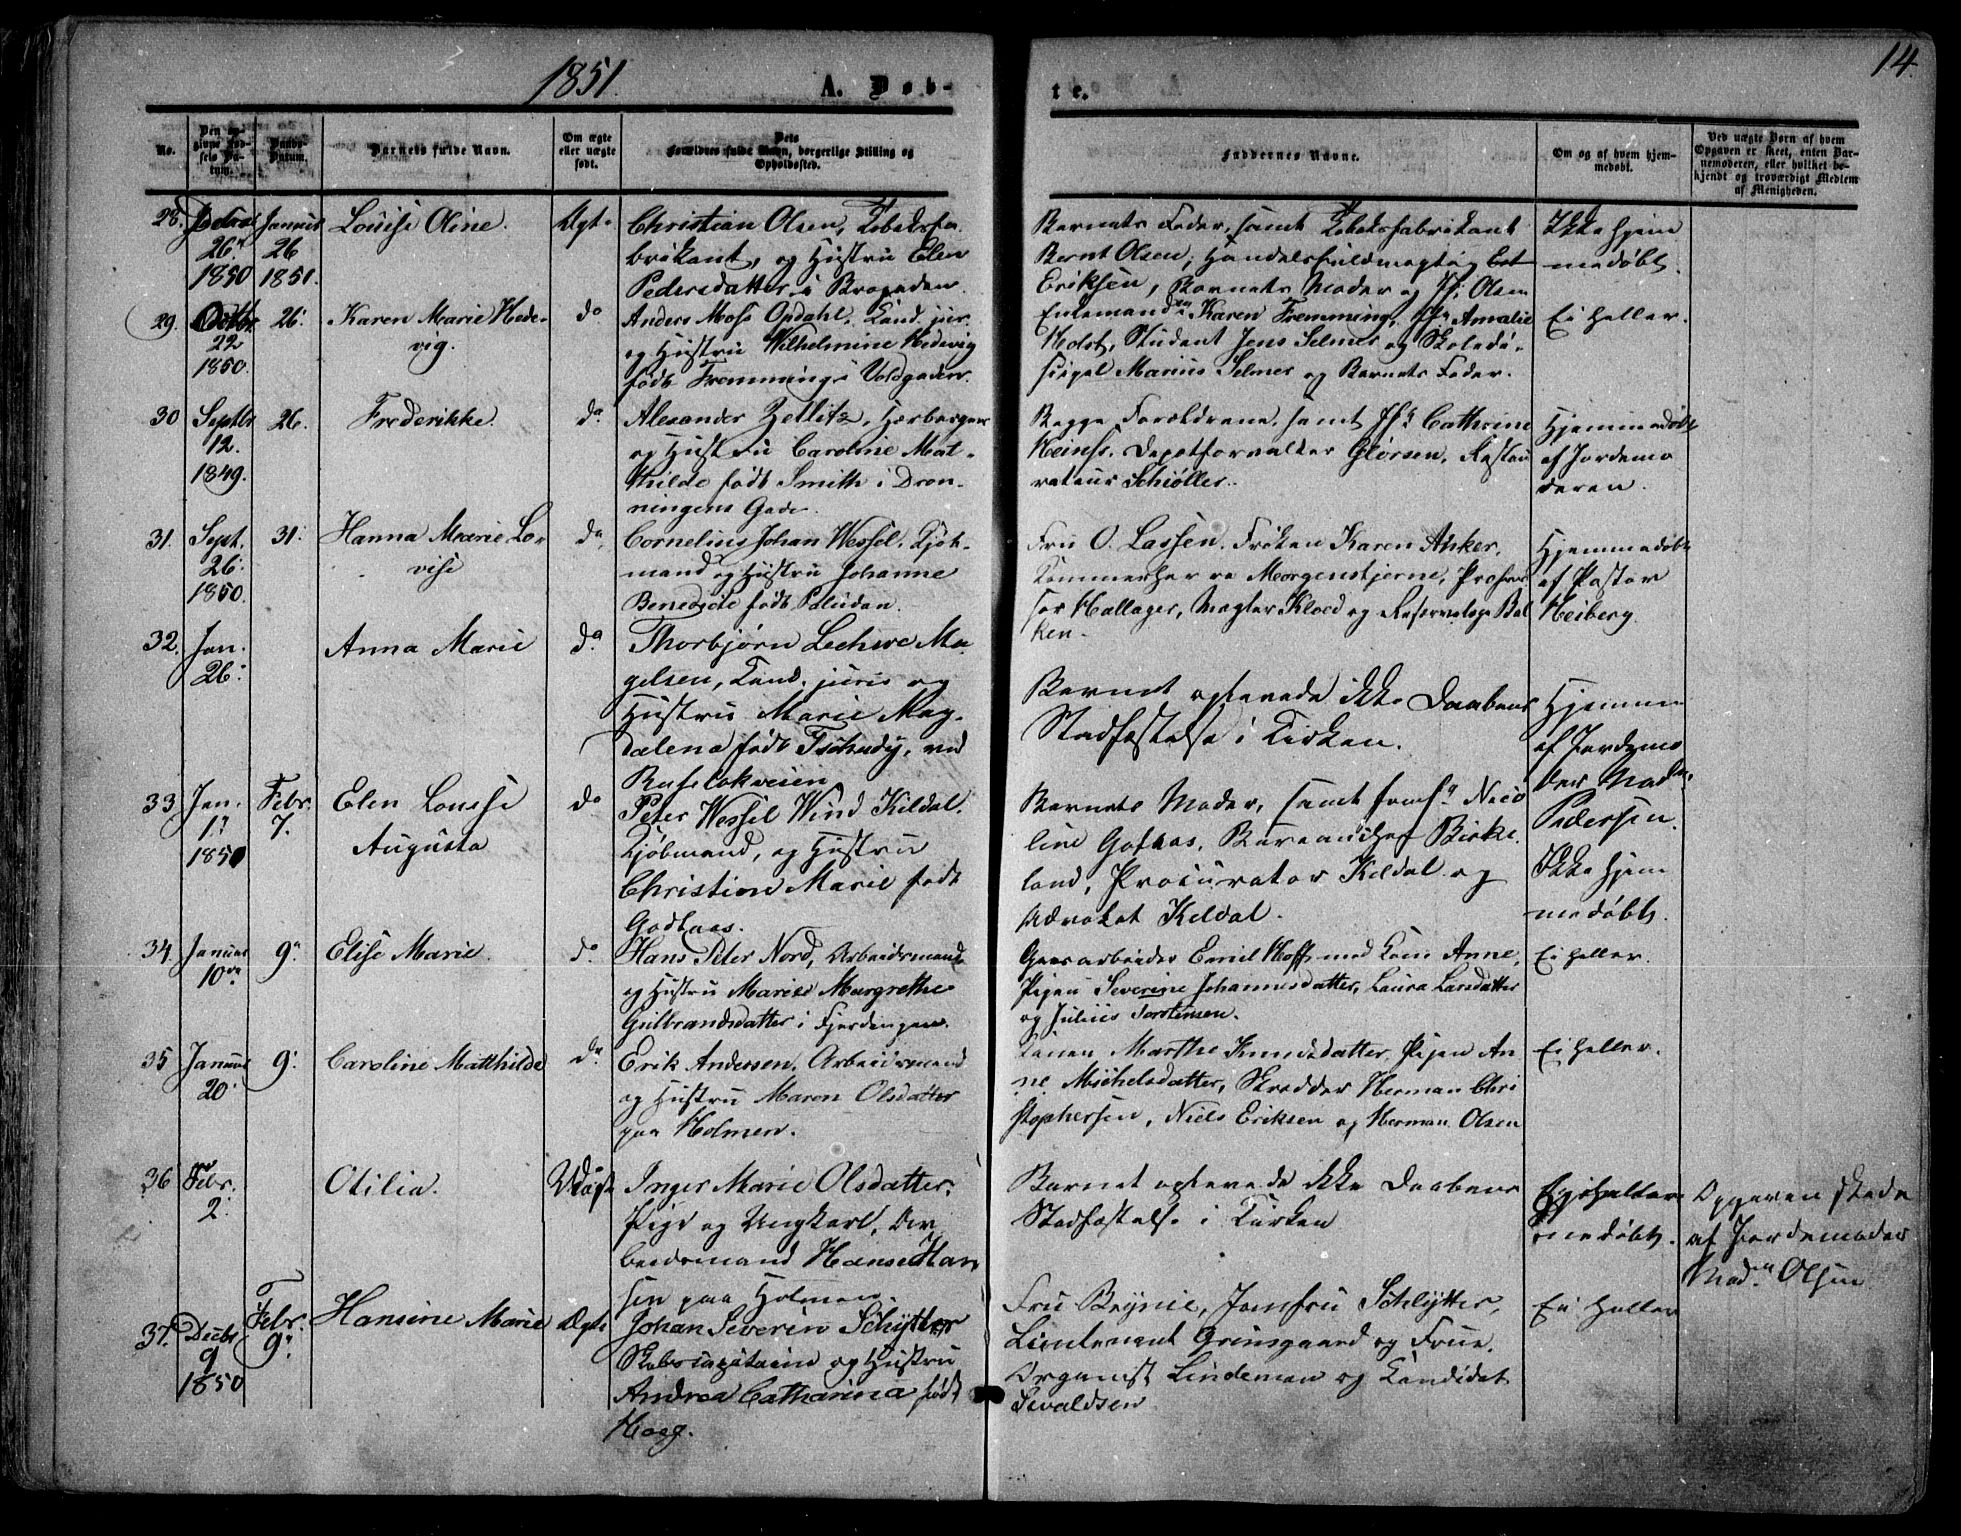 1851.
A. Døb-
te.
14.
No.
Den op-
givne Fød-
sels Da-
tum.
Daabs-
Datum.
Barnets fulde Navn.
Om ægte
eller uægte
født.
Dets
Forældres fulde Navn, borgerlige Stilling og
Opholdssted.
Faddernes Navne.
Om og af hvem hjem-
medøbt.
Ved uægte Børn af hvem
Opgaven er skeet, enten Bar-
nemoderen, eller hvilket be-
kjendt og troværdigt Medlem
af Menigheden.
28.
26.
1850
Januar
26
1851.
Louise Oline.
Ægt.
Christian Olsen, Tobaksfa-
brikant, og Hustru Elen
Pedersdatter i Brogaden.
Barnets Fader, samt Tobaksfabrikant
Bernt Olsen, Handelsfuldmægtig
Eriksen, Barnets Moder og Jf. Olsen
Ikke hjem
medøbt.
29.
Octbr
22
1850.
26.
Karen Marie Hede-
vig.
do
Anders Moss Opdahl, Cand. jur.
og Hustru Wilhelmine Hedevig
født Fremming i Voldgaden.
Enkemadm Karen Fremming, Jfr Amalie
Holst, Student Jens Selmer og Skoledi-
scipel Marius Selmer og Barnets Fader.
Ei heller.
30
Septbr
12.
1849.
26.
Frederikke.
do.
Alexander Zetlitz,
og Hustru Caroline Mat-
thilde født Smith i Dron-
ningens Gade.
Begge Forældrene, samt Jfr Cathrine
Heinss, Depotforvalter Glørsen, Restau
rateur Schiøller.
Hjemmedøbt
af Jordemo
deren.
31.
Sept.
26.
1850.
31.
Hanna Marie Lo-
vise
do.
Cornelius Johan Wessel, Kjøb-
mand og Hustru Johanne
Benedicte født Paludan.
Fru O. Lassen, Frøken Karen Anker,
Kammerherre Morgenstjerne, Profes
sor Hallager, Mægler Kloed og Reservelæge Bal
ken.
Hjemmedøbt
af Pastor
Heiberg.
32.
Jan.
26.
Anna Marie
do.
Thorbjørn Lechve Ma-
gelsen, Cand. juris og
Hustru Marie Mag-
dalena født Tschudy, ved
Ruseløkveien
Barnet oplevede ikke Daabens
Stadfæstelse i Kirken.
Hjemme
af Jordemo
der Madm.
Pedersen.
33
Jan.
1.
1851
Febr.
7.
Elen Louise
Augusta
do
Peter Wessel Wind Kildal.
Kjøbmand, og Hustru
Christian Marie født
Godtaas.
Barnets Moder, samt Nico
line Gotaas, Bureauchef Birke-
land, Procurator Kildal og
Advokat Kildal.
Ikke hjem
medøbt.
34.
Januar
10de
9.
Elise Marie.
do.
Hans Peter Nord, Arbeidsmand
og Hustru Marie Margrethe
Gulbrandsdatter i Fjerdingen.
Gaardarbeider Emil Hoff med Kone Anne,
Pigen Severine Johannesdatter, Laura Larsdatter
og Julius Torstensen.
Ei heller.
35
Januar
20.
9.
Caroline Matthilde
do.
Erik Andersen, Arbeidsmand
og Hustru Maren Olsdatter
paa Holmen.
Konen Marthe Knudsdatter, Pigen An
ne Michelsdatter, Skrædder Herman Chri
stophersen, Niels Eriksen og Herman Olsen
Ei heller.
36
Febr.
2.
Otilia.
Uægt
Inger Marie Olsdatter,
Pige og Ungkarl, Ar-
beidsmand Hans Han
sen paa Holmen.
Barnet oplevede ikke Daabens
Stadfæstelse i Kirken
Ei hjem-
medøbt.
Opgaven skede
af Jordemoder
Madm Olsen
37.
Decbr.
9
1850
Febr.
9.
Hansine Marie
Ægte
Johan Severin Schlytter
Skibscapitain og Hustru
Andrea Catharina født
Haag.
Fru Brynie, Jomfru Schlytter,
Lieutenant Grimsgaard og Frue,
Organist Lindeman og Kandidat
Sivaldsen
Ei heller